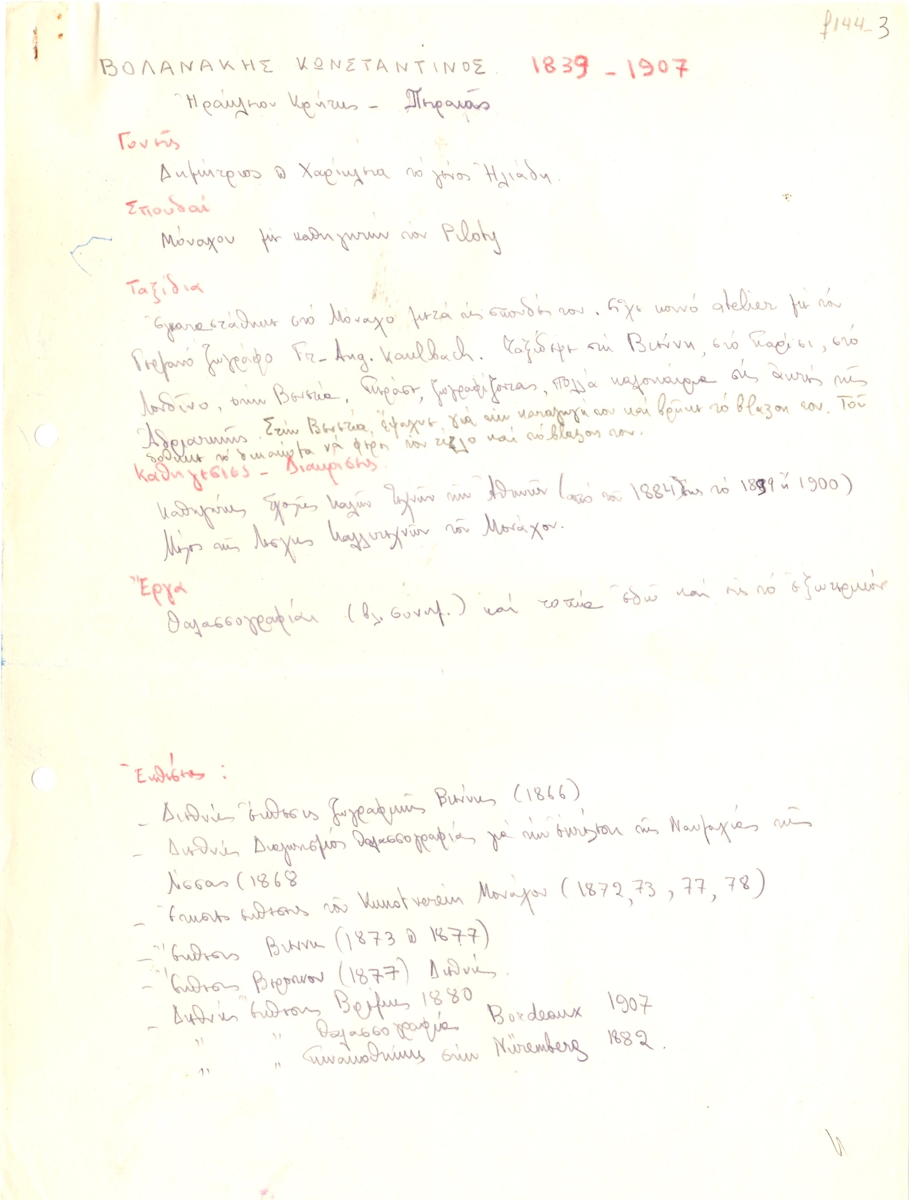 f144-3
ΒΟΛΑΝΑΚΗΣ ΚΩΝΣΤΑΝΤΙΝΟΣ 1839 - 1907
Ἡράκλειον Κρήτης - Πειραιᾶς
Γονεῖς
Δημήτριος & Χαρίκλεια τό γένος Ἠλιάδη.
Σπουδαί
Μόναχον μέ καθηγητήν τόν Piloty
Ταξίδια
Ἐγκαταστάθηκε στό Μόναχο μετά τίς σπουδές του. Εἶχε κοινό atelier μέ τόν
Γερμανό ζωγράφο Fr-Aug. Kaulbach. Ταξίδεψε στή Βιέννη, στό Παρίσι, στό
Λονδίνο, στήν Βενετία, ζωγραφίζοντας, πολλά καλοκαίρια στίς ἀκτές τῆς
Ἀδριατικῆς. Στήν Βενετία ἔψαχνε γιά τήν καταγωγή του καί βρῆκε τό βlazon του. Τοῦ
δόθηκε τό δικαίωμα νά φέρη τόν τίτλο καί τό βlazon του.
Καθηγεσίες - Διακρίσεις
Καθηγητής Σχολῆς Καλῶν Τεχνῶν τῶν Ἀθηνῶν (ἀπό τό 1884 ἕως τό 1899 ἤ 1900)
Μέλος τῆς Λέσχης Καλλιτεχνῶν τοῦ Μονάχου.
Ἔργα
Θαλασσογραφίαι (βλ. συνημ.) καί τοπία ἐδῶ καί εἰς τό ἐξωτερικόν
Ἐκθέσεις :
- Διεθνής ἔκθεσις ζωγραφικῆς Βιέννης (1866)
- Διεθνής Διαγωνισμός θαλασσογραφίας γιά τήν ἐπέτειο τῆς Ναυμαχίας τῆς
Λίσσας (1868
- ἐκθέσεις τοῦ Kunstverein Μονάχου (1872, 73, 77, 78)
- Ἔκθεσις Βιέννη (1873 & 1877)
- Ἔκθεσις Βερολίνου (1877) Διεθνής.
- Διεθνής Ἔκθεσις Βρέμης 1880
" " θαλασσογραφίας Bordeaux 1907
" " Πινακοθήκης στήν Nüremberg 1882.